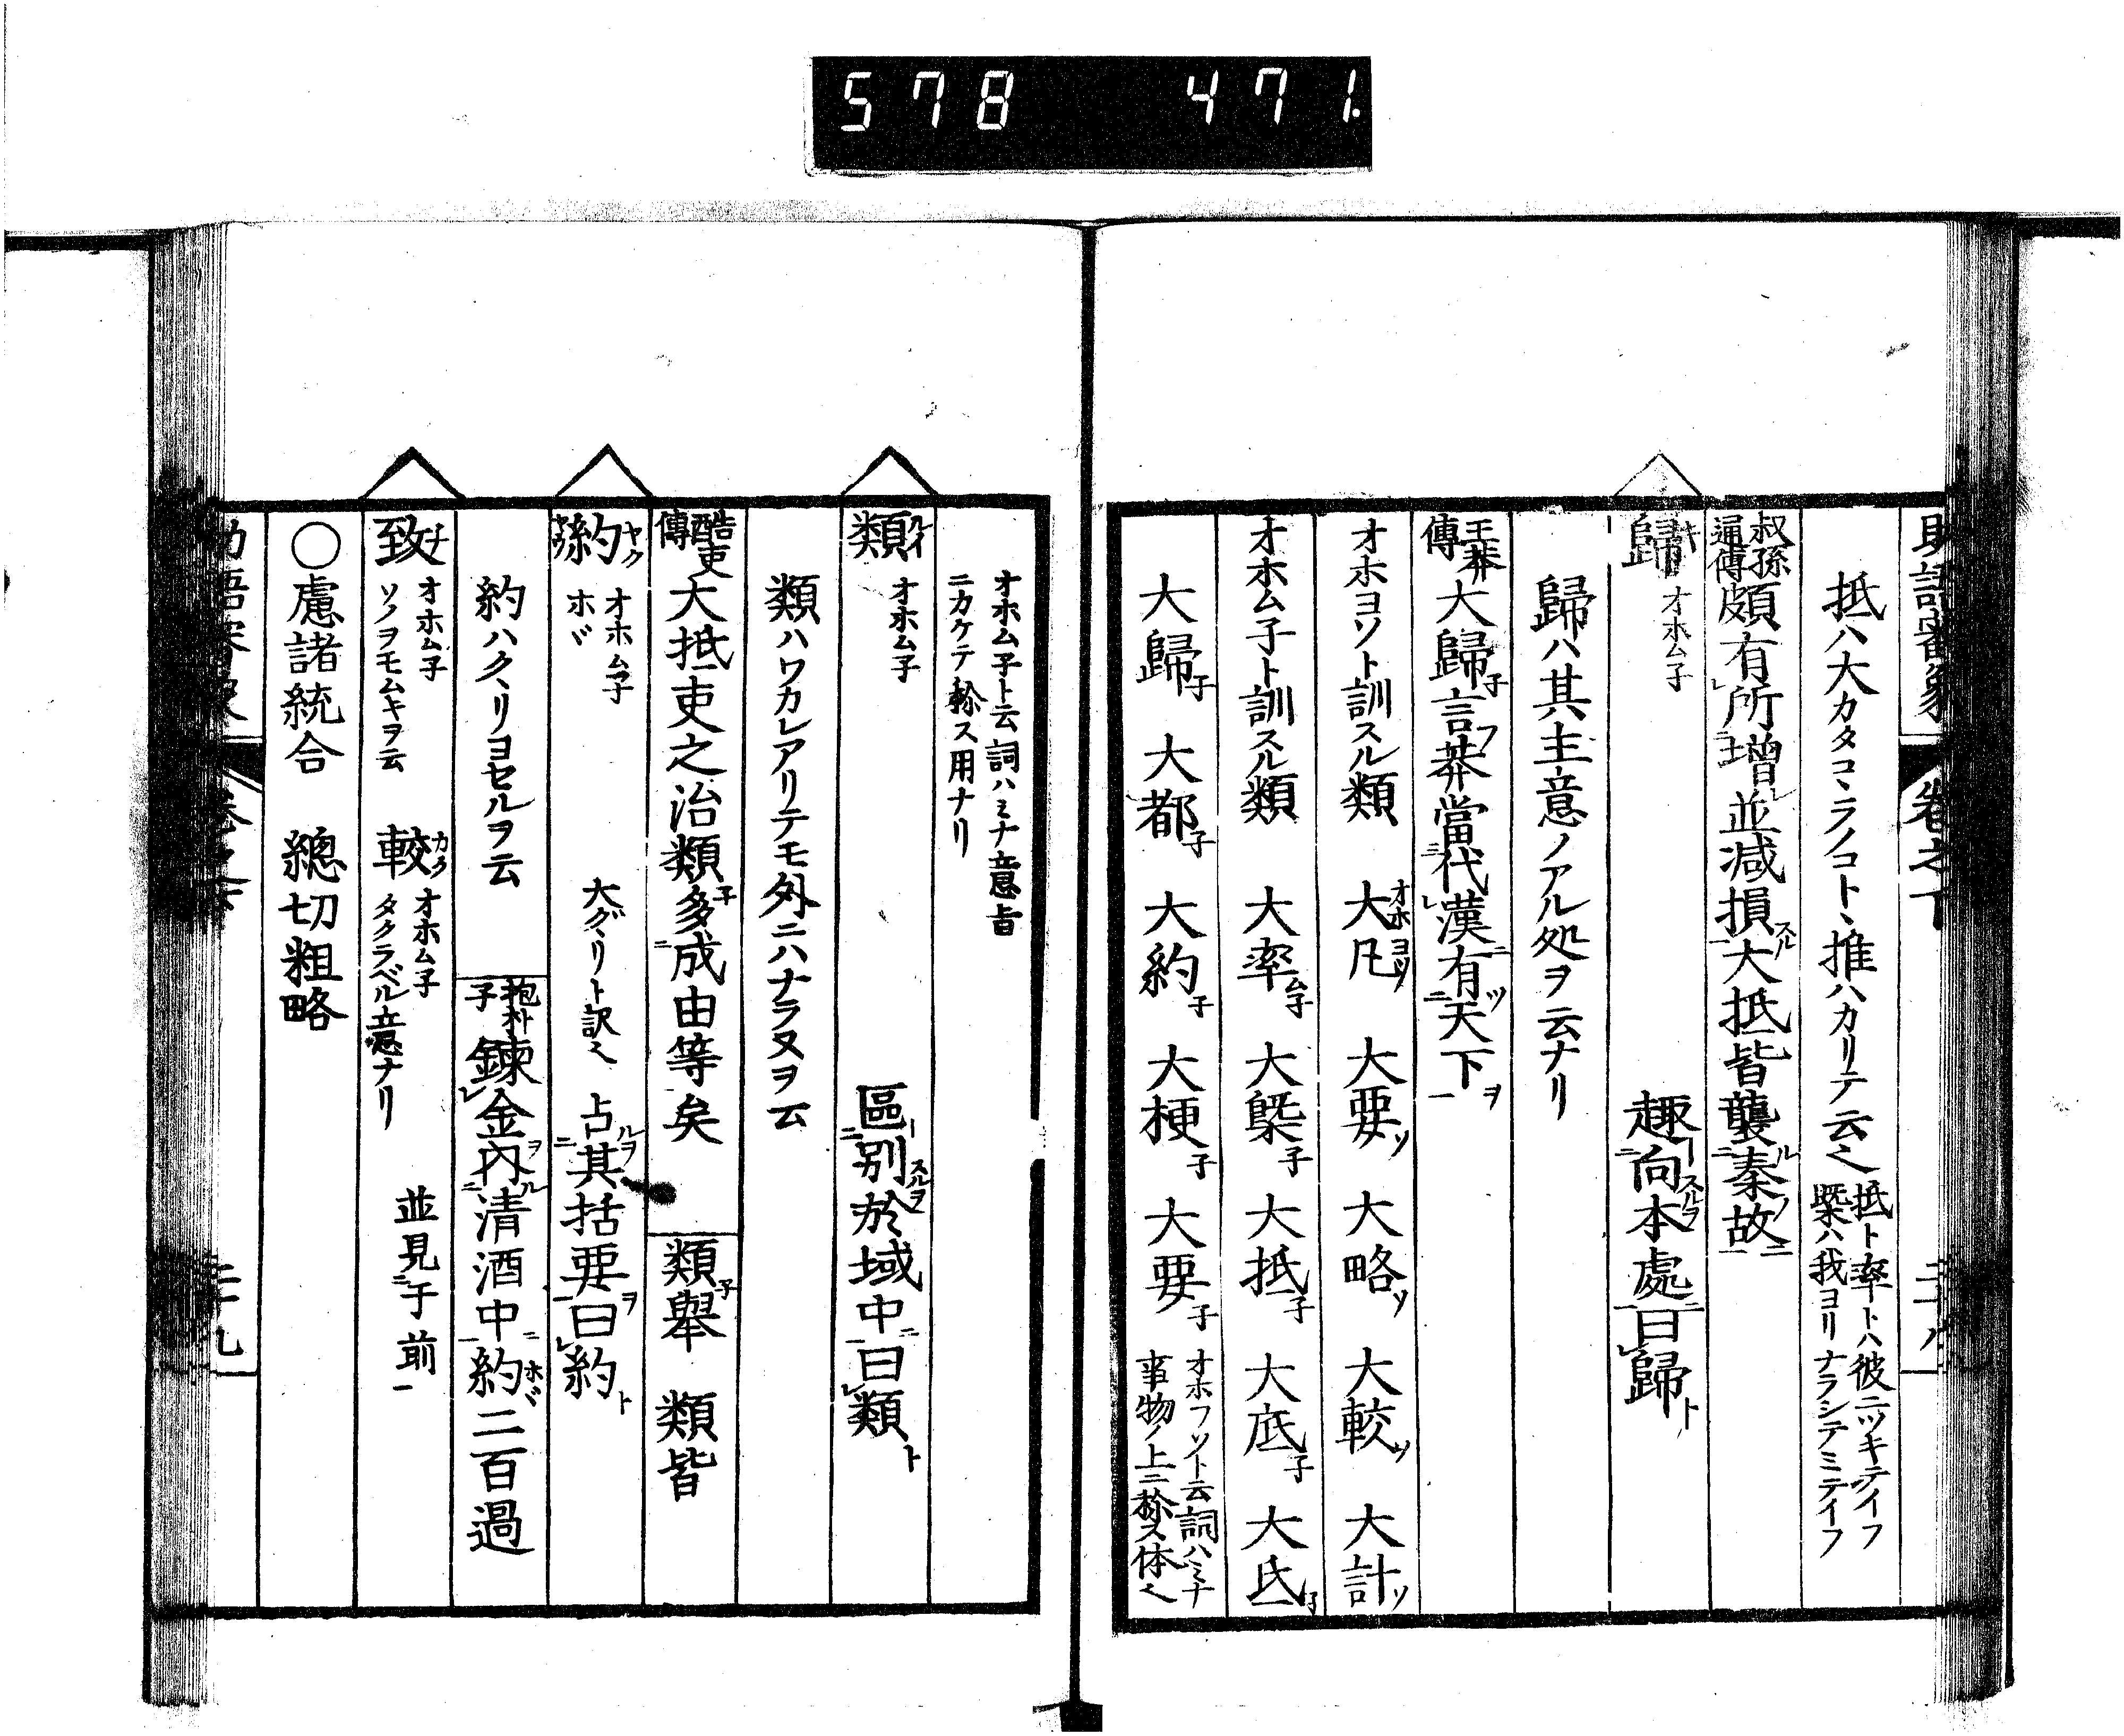 578 471.
抵ハ大カタコヽラノコトヽ推ハカリテ云之
抵ト率トハ彼ニツキテイフ
槩ハ我ヨリナラシテミテイフ
叔孫通傳 頗有所増並减損スル大抵皆襲秦故
歸 キ オホム子 趣向スルヲ本處曰歸ト
歸ハ其主意ノアル処ヲ云ナリ
王莽傳 大歸子言フ莽當代漢有ツ天下ヲ
オホヨソト訓スル類 大凡オホヨソ 大要ソ 大略ソ 大較ソ 大計ソ
オホム子ト訓スル類 大率ム子 大槩子 大抵子 大底子 大氐子
大歸子 大都子 大約子 大梗子 大要子
オホフソト云詞ハミナ
事物ノ上ニ称ス体之
オホム子ト云詞ハミナ意旨
ニカケテ称ス用ナリ
類 ルイ オホム子 區別スルヲ於域中ニ曰類ト
類ハワカレアリテモ外ニハナラヌヲ云
酷吏傳 大抵吏之治類子多成由等矣 類子舉 類皆
約 ヤク オホム子 ホヾ 大グヽリト訳之 占其括要ヲ曰約ト
約ハクヽリヨセルヲ云 抱朴子 鍊金ヲ內ル清酒中ニ約ホヾ二百過
致 チ オホム子 ソノヲモムキヲ云 較 カク オホム子 タクラベル意ナリ 並見于前
○慮諸統合 總切粗略